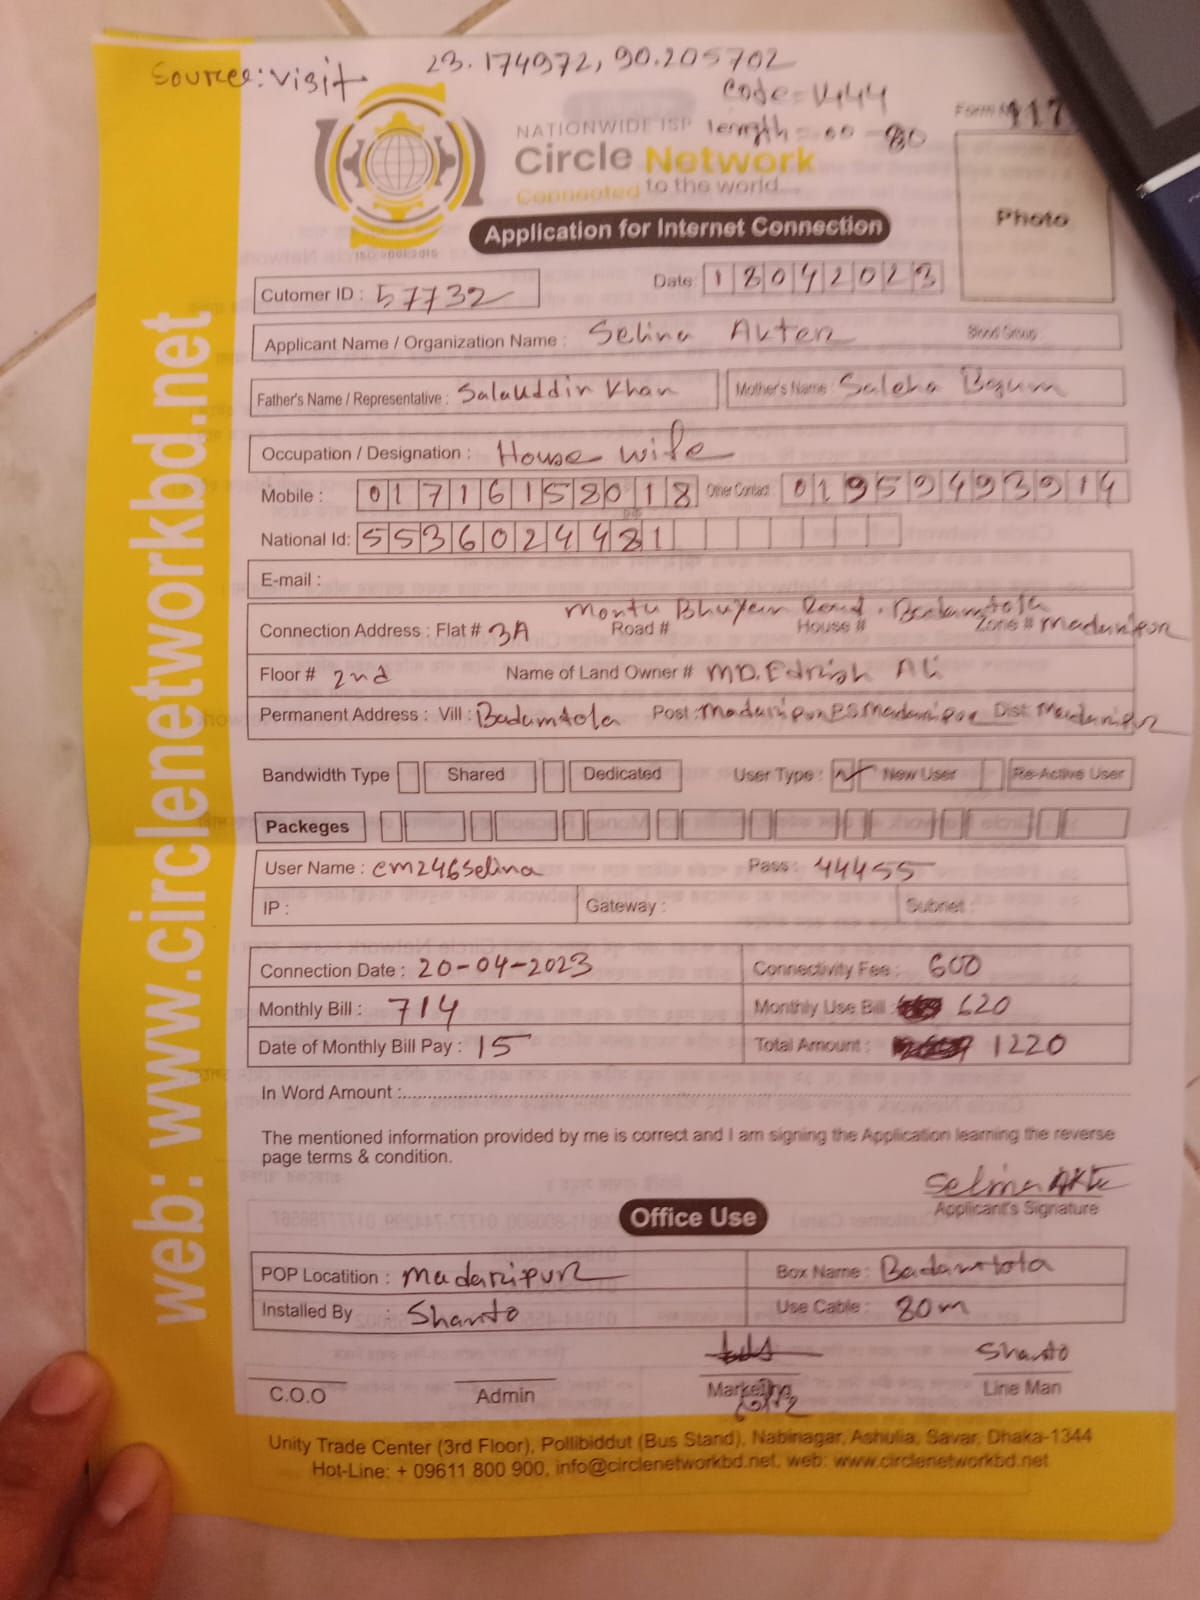 Source: visit 23.174972, 90.205702
Code = V444
Form No 117
length = 00 - 80
NATIONWIDE ISP
Circle Network
Connected to the world....
ISO 9001:2015
Application for Internet Connection
Photo
Cutomer ID : 57732
Date: 18042023
Applicant Name / Organization Name : Selina Akter Blood Group
Father's Name / Representative : Salauddin Khan Mother's Name : Saleha Begum
Occupation / Designation : House wife
Mobile : 01716158018 Other Contact : 01959493914
National Id: 5536024481
E-mail :
Montu Bhuyan Road, Badamtola
Connection Address : Flat # 3A Road # House # Zone # Madaripur
Floor # 2nd Name of Land Owner # MD. Edrish Ali
Permanent Address : Vill : Badamtola Post : Madaripur P.S Madaripur Dist Madaripur
Bandwidth Type Shared Dedicated User Type : New User Re-Active User
Packeges
User Name : cm246selina Pass : 44455
IP : Gateway : Subnet :
Connection Date : 20-04-2023 Connectivity Fee : 600
Monthly Bill : 714 Monthly Use Bill : 620
Date of Monthly Bill Pay : 15 Total Amount : 1220
In Word Amount :
The mentioned information provided by me is correct and I am signing the Application learning the reverse
page terms & condition.
Selina Akte
Applicant's Signature
Office Use
POP Locatition : Madaripur Box Name : Badamtola
Installed By : Shanto Use Cable : 80m
Shanto
C.O.O Admin Marketing Line Man
Unity Trade Center (3rd Floor), Pollibiddut (Bus Stand), Nabinagar, Ashulia, Savar, Dhaka-1344
Hot-Line: + 09611 800 900, info@circlenetworkbd.net, web: www.circlenetworkbd.net
web: www.circlenetworkbd.net